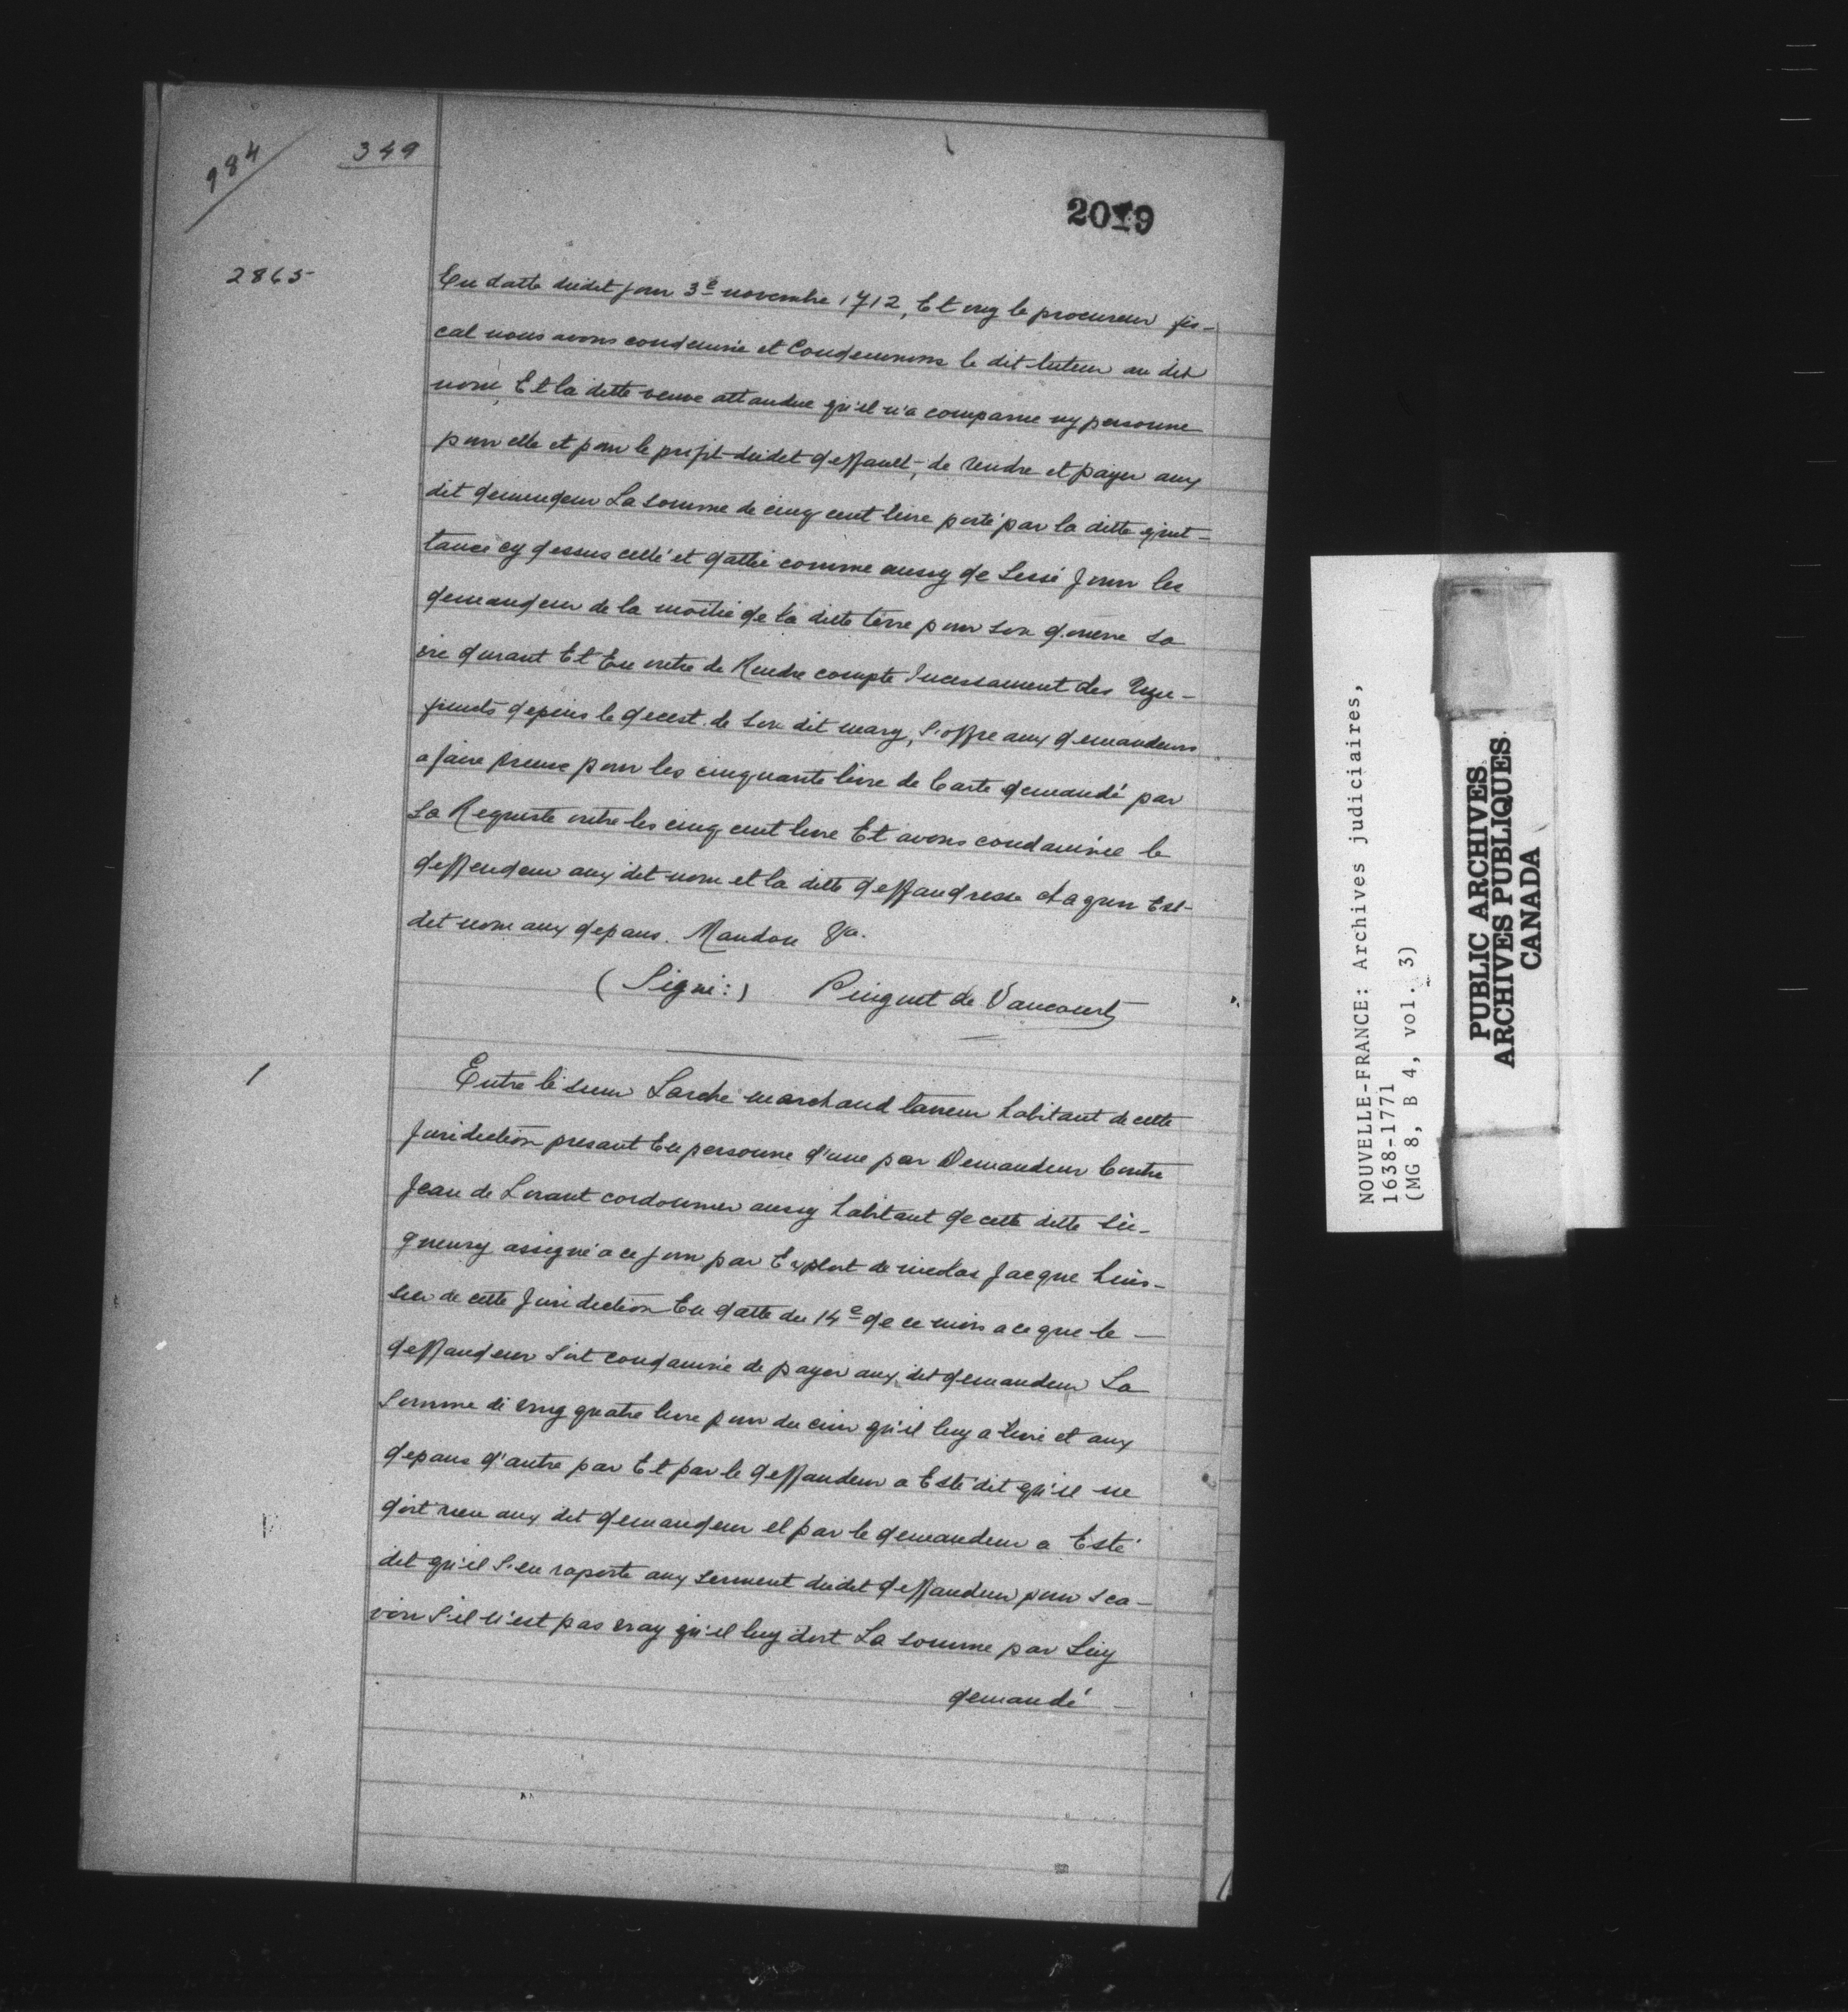 984
349
2019
2865
En datte dudit jour 3e novembre 1712, Et ouy le procureur fis-
cal nous avons condemné et Condemnons le dit tuteur au dit
nom, Et la ditte veuve attandue qu'il n'a comparue ny personne
pour elle et pour le profit dudit deffault, de rendre et payer aux
dit demendeur La somme de cinq cent livre porté par la ditte quit-
tance cy dessus cellé et dattée comme aussy de Lessé Jouir les
demandeur de la moitié de la ditte terre pour son douere sa
vie durant Et En outre de Rendre compte Incessament des Usu-
fruicts depuis le decest de son dit mary, S'offre aux demandeurs
a faire preuve pour les cinquante livre de Carte demandé par
La Requeste outre les cinq cent livre Et avons condamnée le
deffendeur aux dit nom et la ditte deffandresse chaqun Est
dit nom aux depans. Mandon &a.
(Signé:) Pinguet de Vaucourt
1
Entre le sieur Larche marchand taneur habitant de cette
Juridiction presant En personne d'une par Demandeur Contre
Jean de Lorant cordonnier aussy habitant de cette ditte Sei-
gneurÿ assigné a ce jour par Exploit de nicolas Jacque huis-
sier de cette Juridiction En datte du 14e de ce mois a ce que le
deffandeur soit condamné de payer aux dit demandeur La
Somme de vingt quatre livre pour du cuir qu'il luy a livré et aux
depans d'autre par Et par le deffandeur a Esté dit qu'il ne
doit rien aux dit demandeur et par le demandeur a Esté
dit qu'il S'en raporte aux serment dudit deffandeur pour sca-
voir S'il n'est pas vray qu'il luy doit La somme par Luy
demandé
NOUVELLE-FRANCE: Archives judiciaires,
1638-1771
(MG 8, B 4, vol. 3)
PUBLIC ARCHIVES
ARCHIVES PUBLIQUES
CANADA